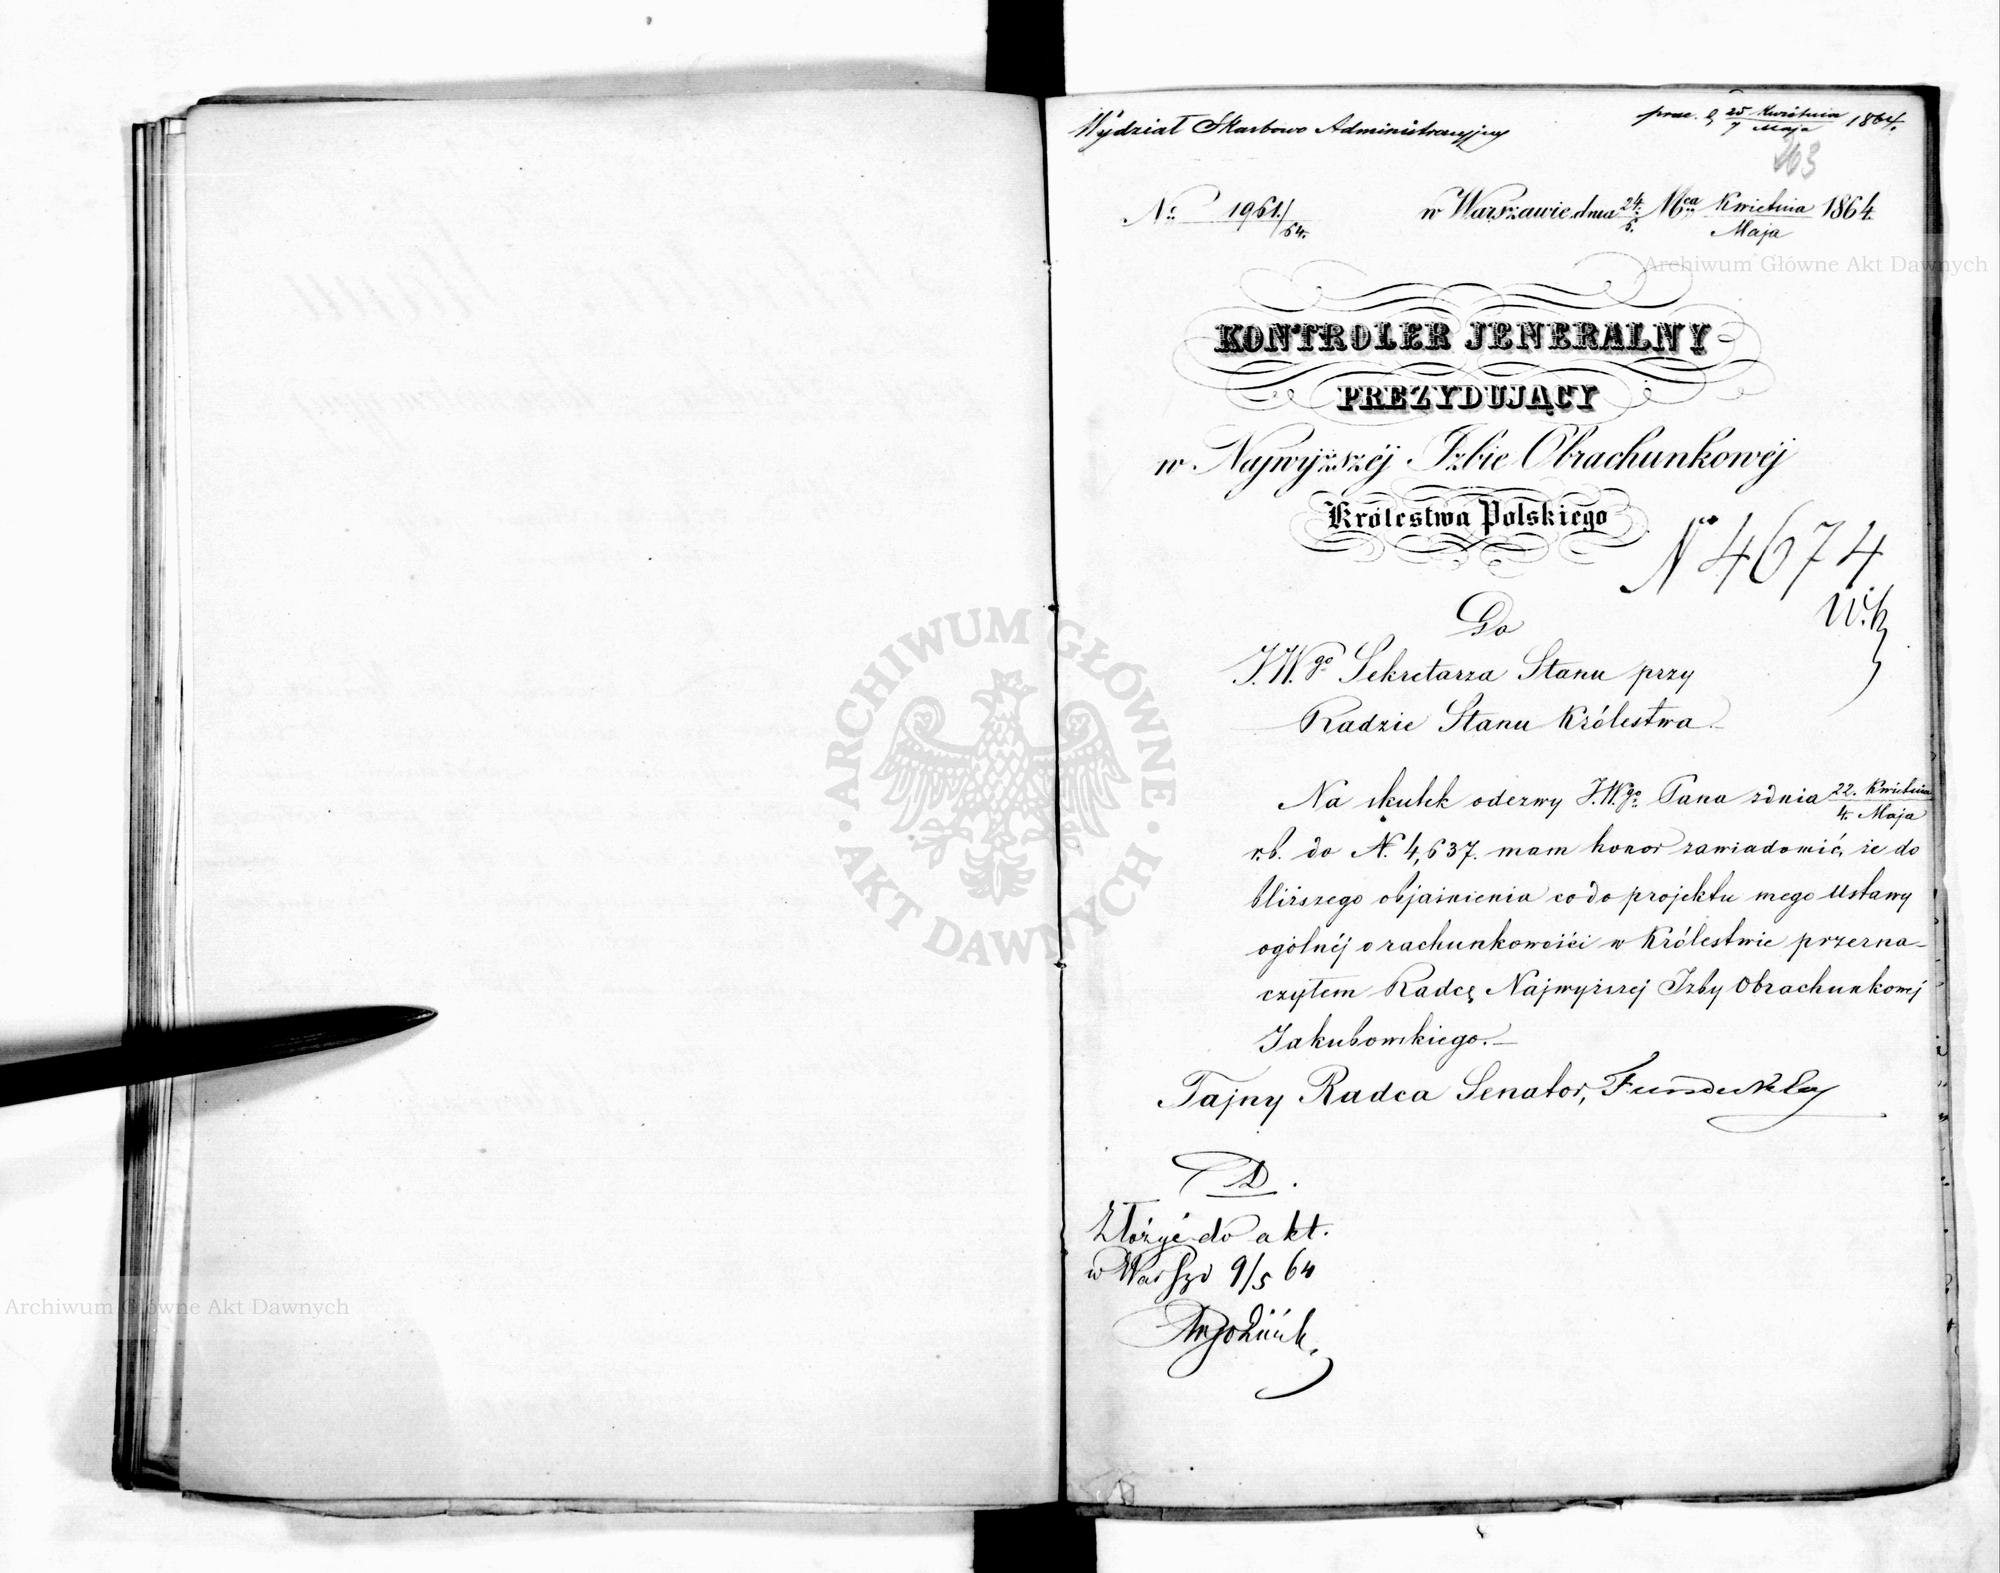 Wydział Skarbowo Administracyjny
prez. d. 25 Kwietnia / 7 Maja 1864.
263
No 1961./64.
w Warszawie dnia 24./6. Mca Kwietnia / Maja 1864.
KONTROLER JENERALNY
PREZYDUJĄCY
w Najwyższéj Izbie Obrachunkowéj
Królestwa Polskiego
No 4674
Do
J.W.go Sekretarza Stanu przy
Radzie Stanu Królestwa.
Na skutek odezwy J.W.go Pana z dnia 22. Kwietnia / 4. Maja
r.b. do N. 4,637. mam honor zawiadomić, że do
bliższego objaśnienia co do projektu mego Ustawy
ogólnéj o rachunkowości w Królestwie przezna-
czyłem Radcę Najwyższej Izby Obrachunkowej
Jakubowskiego.
Tajny Radca Senator, Funduklej
D.
Złożyć do akt.
w Warsza 9/5 64
Archiwum Główne Akt Dawnych
ARCHIWUM GŁÓWNE
AKT DAWNYCH
Archiwum Główne Akt Dawnych